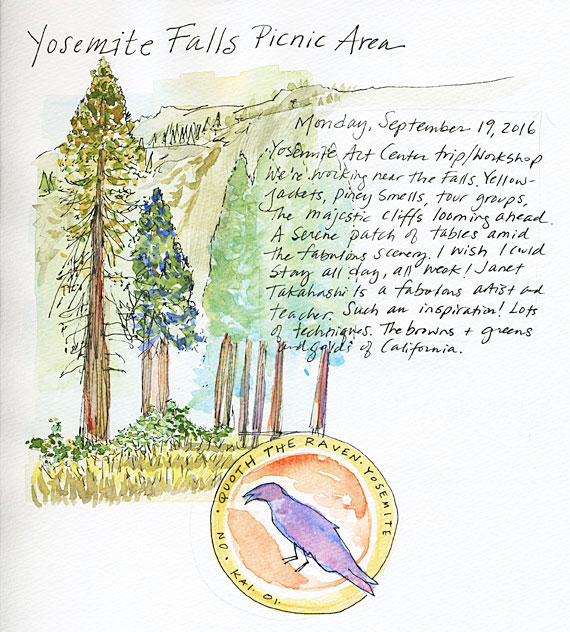 Yosemite Falls Picnic Area
Monday, September 19, 2016
Yosemite Art Center trip/Workshop
We're working near the Falls. Yellow-
jackets, piney smells, tour groups,
The majestic cliffs looming ahead.
A serene patch of tables amid
the fabulous scenery. I wish I could
stay all day, all week! Janet
Takahashi is a fabulous artist and
teacher. Such an inspiration! Lots
of techniques. The browns + greens
and golds of California.
QUOTH THE RAVEN · YOSEMITE
· NO · KAI · OI ·